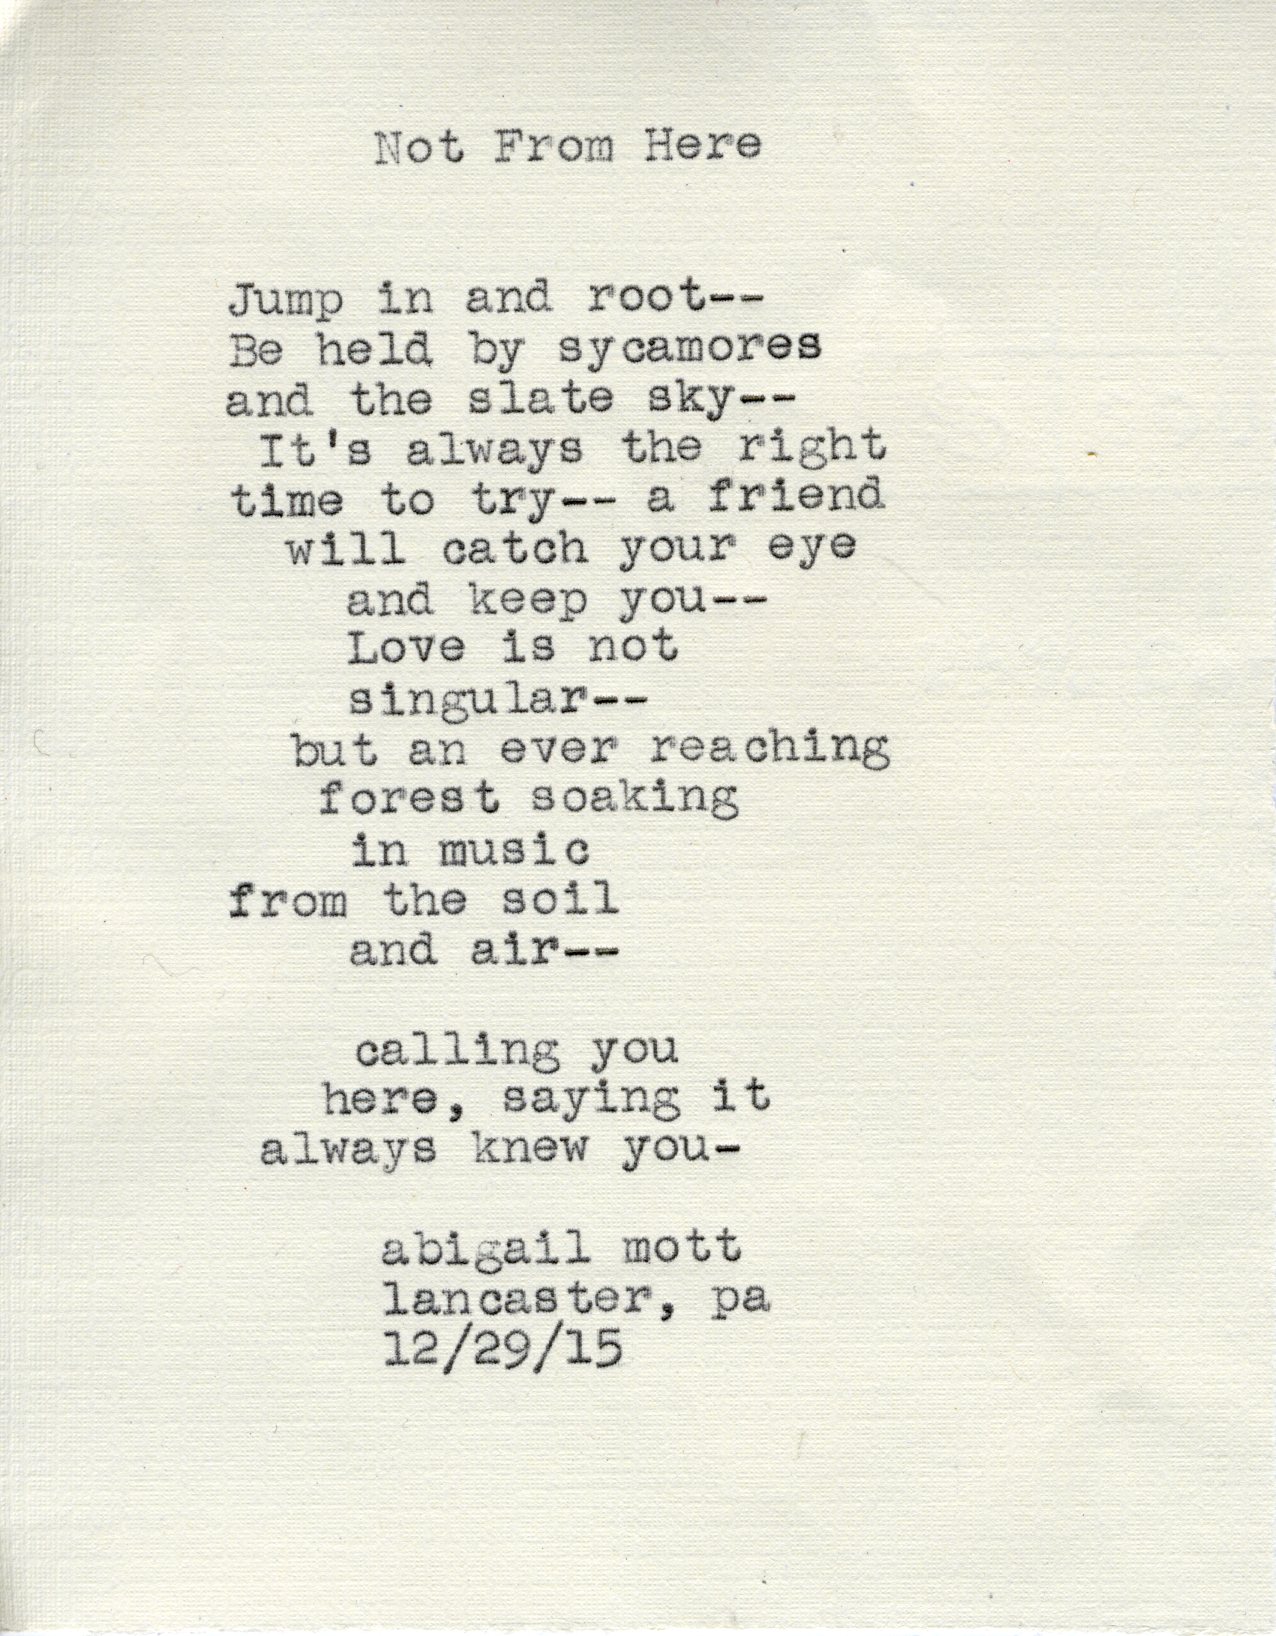 Not From Here
Jump in and root--
Be held by sycamores
and the slate sky--
It's always the right
time to try-- a friend
will catch your eye
and keep you--
Love is not
singular--
but an ever reaching
forest soaking
in music
from the soil
and air--
calling you
here, saying it
always knew you-
abigail mott
lancaster, pa
12/29/15